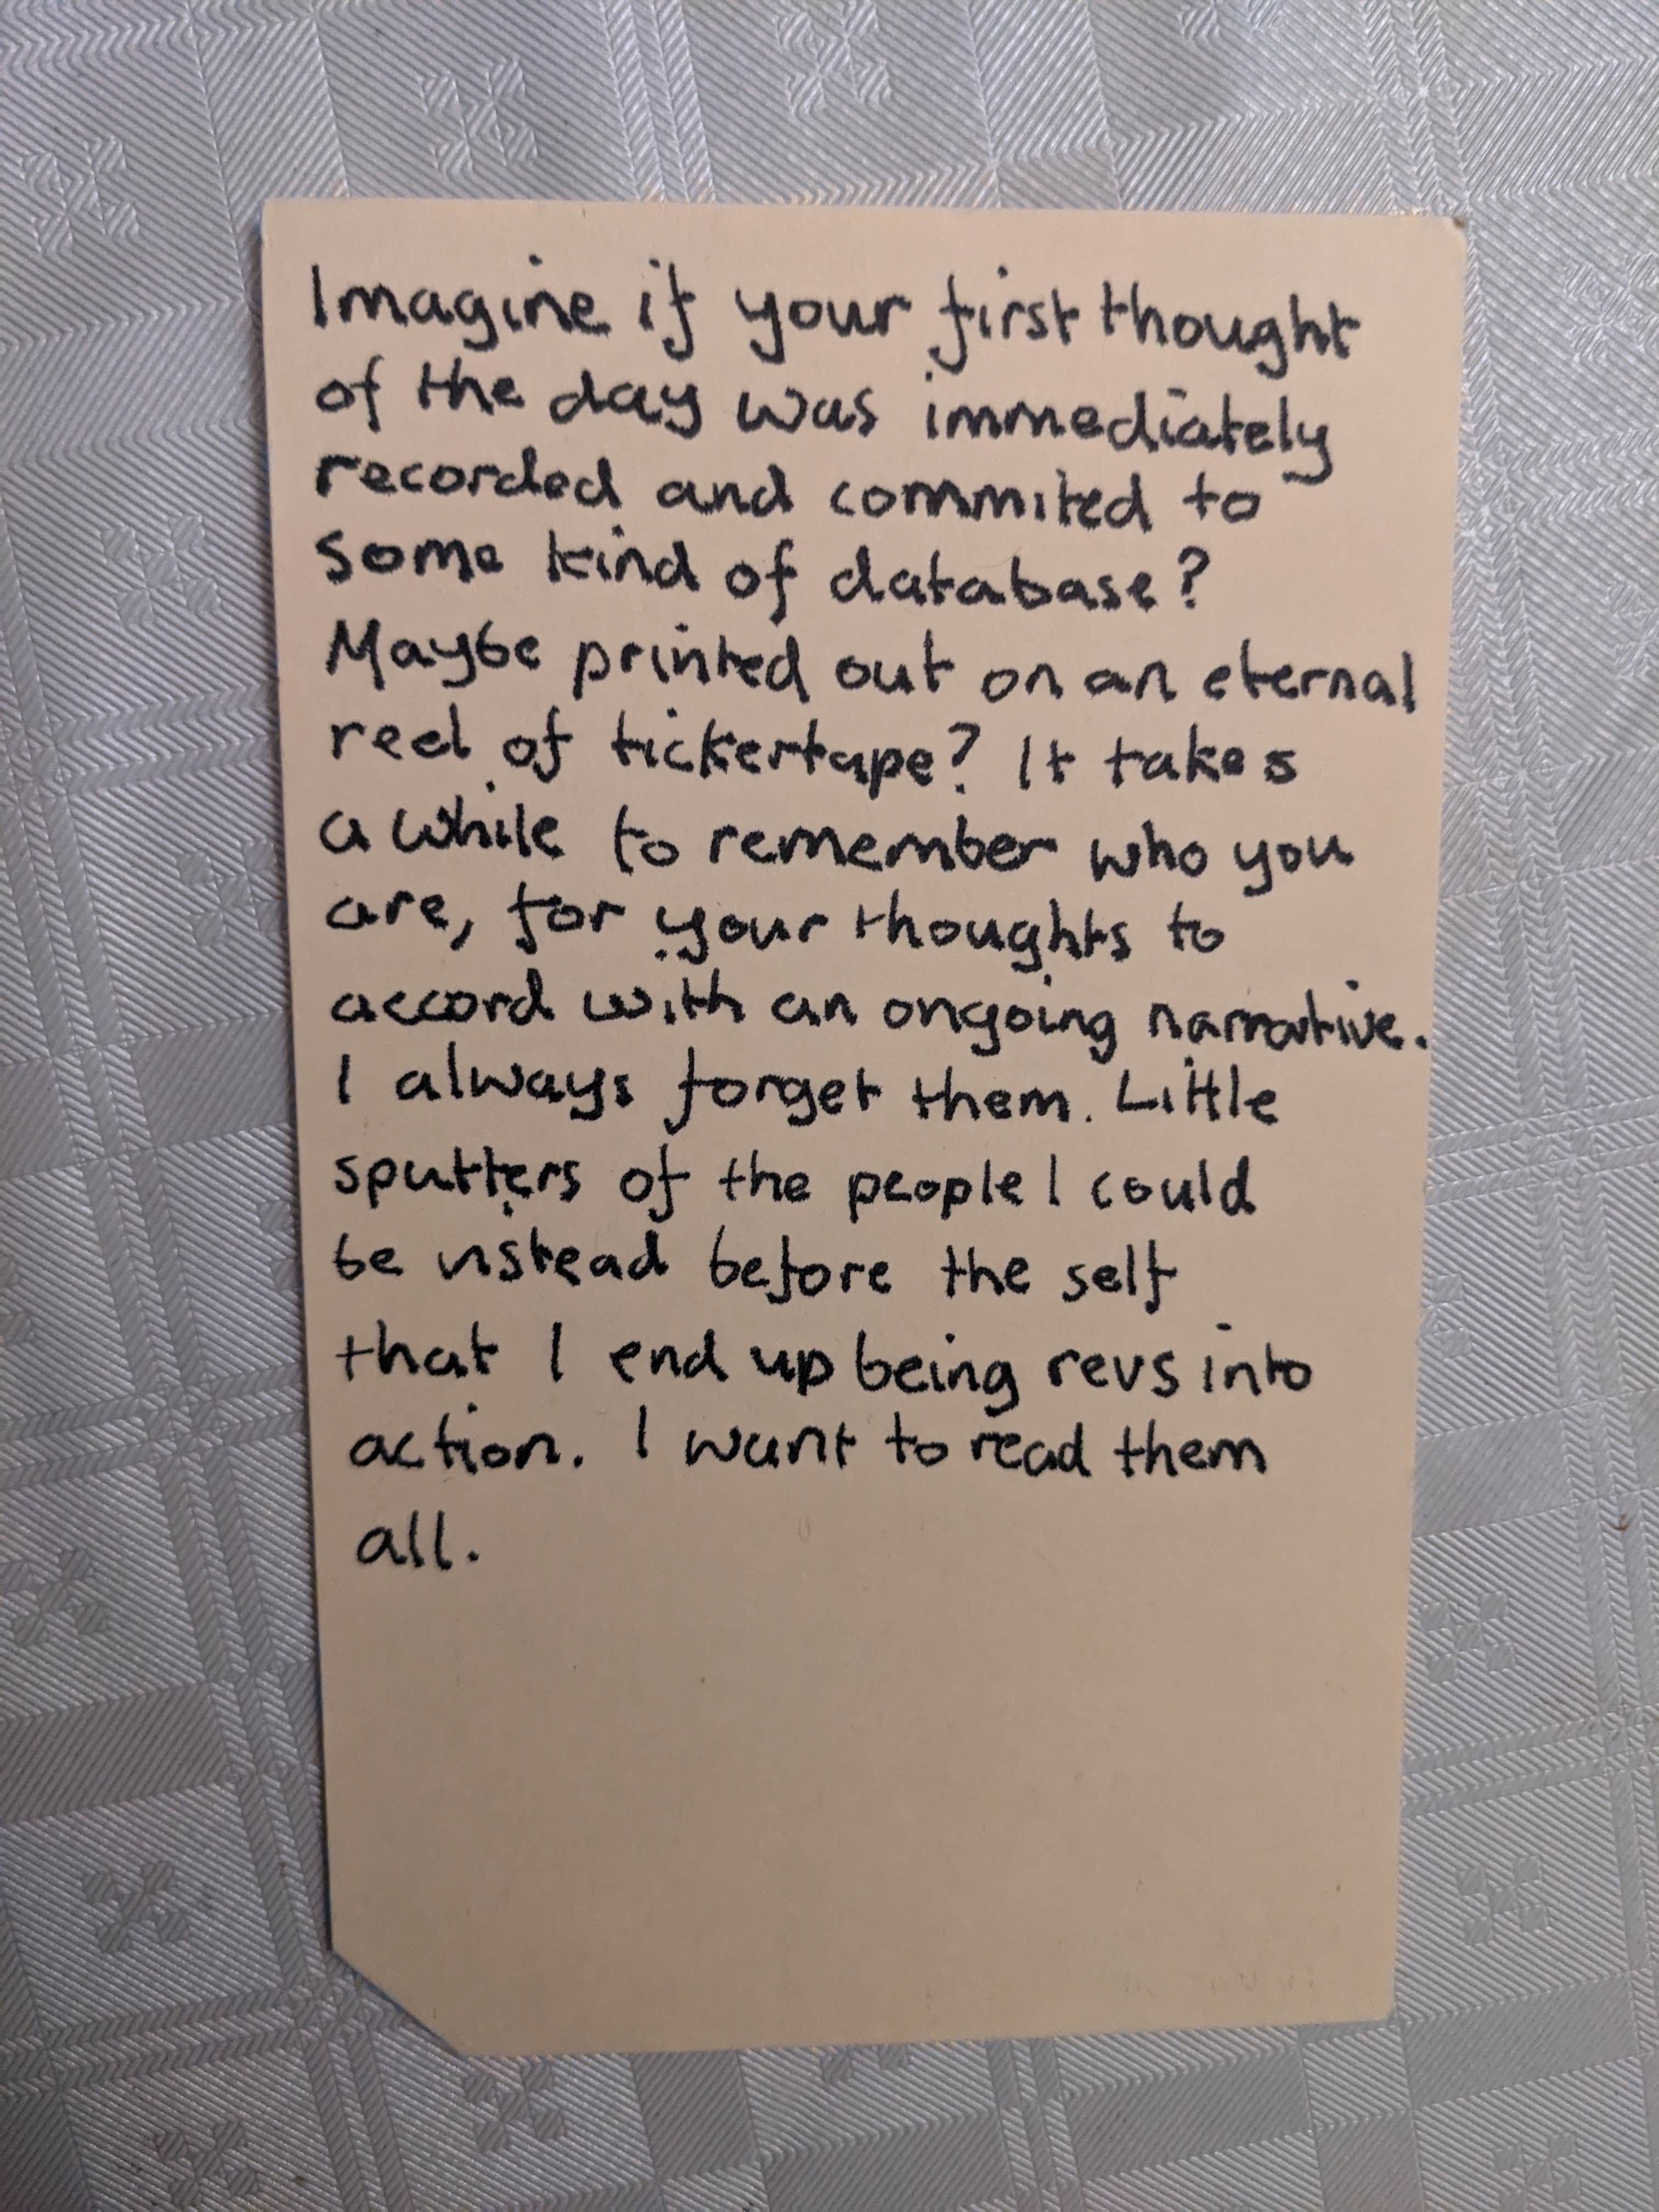 Imagine if your first thought
of the day was immediately
recorded and commited to
some kind of database?
Maybe printed out on an eternal
reel of tickertape? It takes
a while to remember who you
are, for your thoughts to
accord with an ongoing narrative.
I always forget them. Little
sputters of the people I could
be instead before the self
that I end up being revs into
action. I want to read them
all.